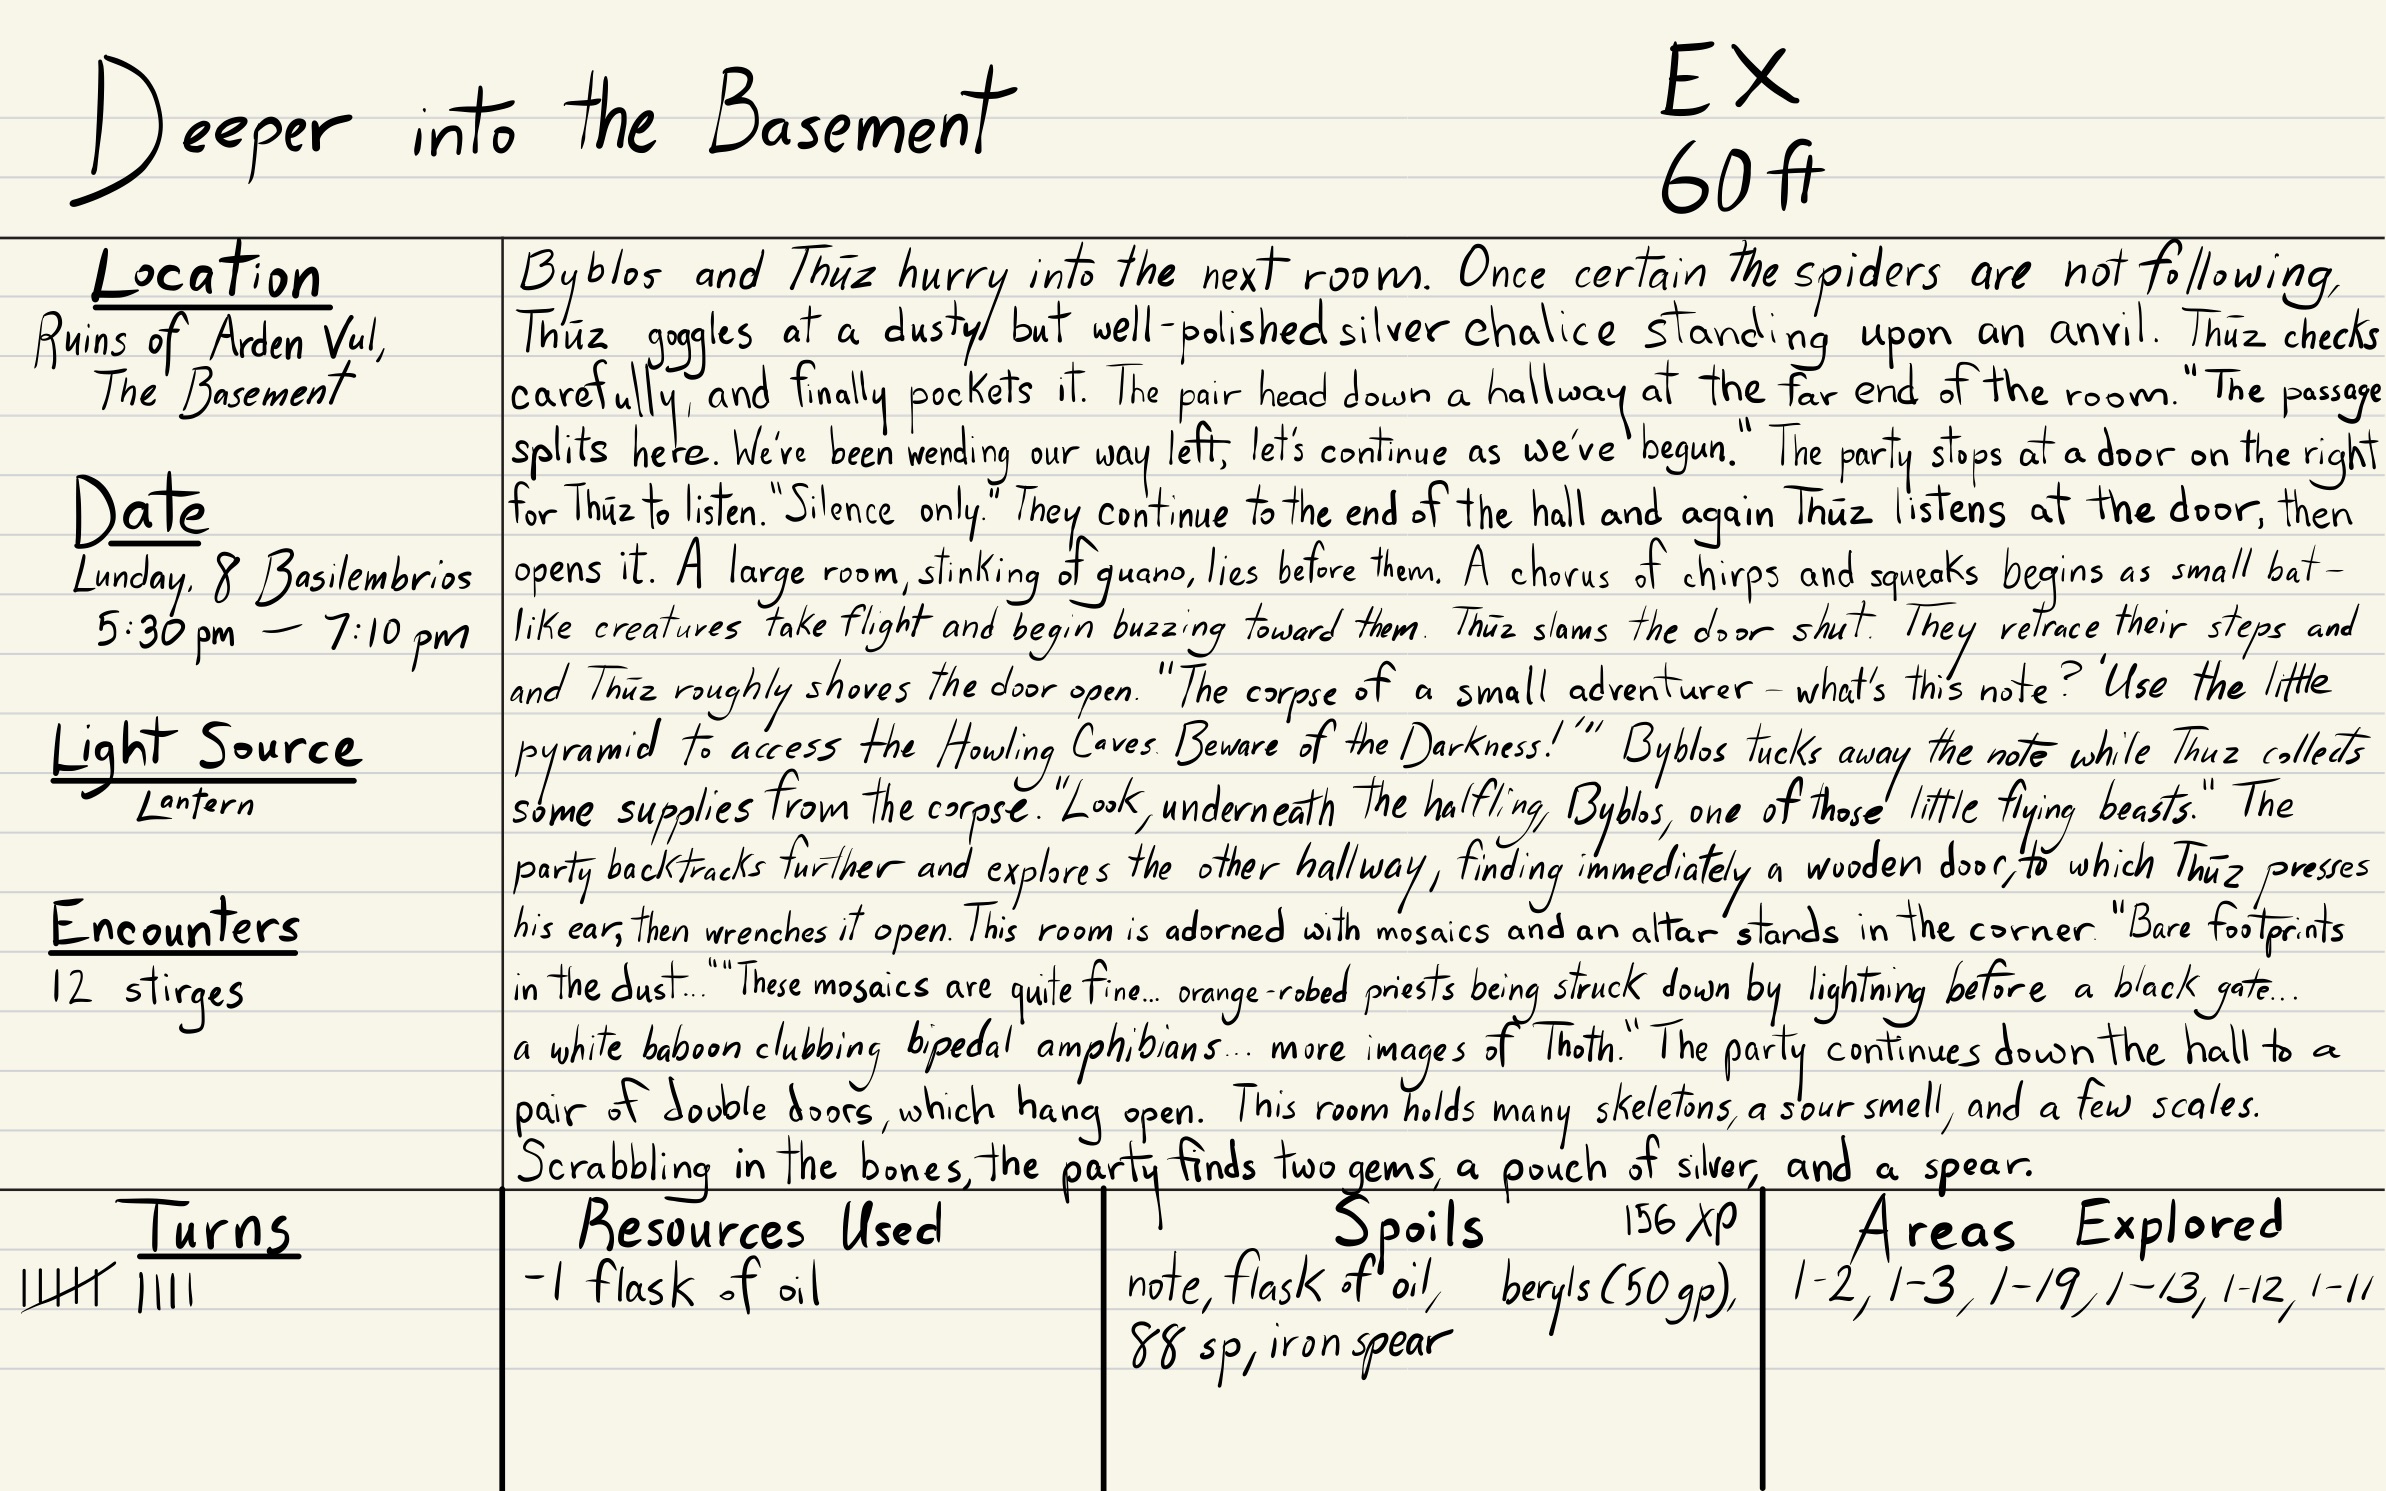 Deeper into the Basement
EX
60 ft
Location
Ruins of Arden Vul,
The Basement
Date
Lunday, 8 Basilembrios
5:30 pm – 7:10 pm
Light Source
Lantern
Encounters
12 stirges
Byblos and Thūz hurry into the next room. Once certain the spiders are not following,
Thūz goggles at a dusty but well-polished silver chalice standing upon an anvil. Thūz checks
carefully, and finally pockets it. The pair head down a hallway at the far end of the room. "The passage
splits here. We've been wending our way left, let's continue as we've begun." The party stops at a door on the right
for Thūz to listen. "Silence only." They continue to the end of the hall and again Thūz listens at the door, then
opens it. A large room, stinking of guano, lies before them. A chorus of chirps and squeaks begins as small bat-
like creatures take flight and begin buzzing toward them. Thūz slams the door shut. They retrace their steps and
and Thūz roughly shoves the door open. "The corpse of a small adventurer – what's this note? 'Use the little
pyramid to access the Howling Caves. Beware of the Darkness!'" Byblos tucks away the note while Thuz collects
some supplies from the corpse. "Look, underneath the halfling, Byblos, one of those little flying beasts." The
party backtracks further and explores the other hallway, finding immediately a wooden door, to which Thūz presses
his ear, then wrenches it open. This room is adorned with mosaics and an altar stands in the corner. "Bare footprints
in the dust..." "These mosaics are quite fine... orange-robed priests being struck down by lightning before a black gate...
a white baboon clubbing bipedal amphibians... more images of Thoth." The party continues down the hall to a
pair of double doors, which hang open. This room holds many skeletons, a sour smell, and a few scales.
Scrabbling in the bones, the party finds two gems, a pouch of silver, and a spear.
Turns
𝍸 ||||
Resources Used
-1 flask of oil
Spoils 156 XP
note, flask of oil, beryls (50 gp),
88 sp, iron spear
Areas Explored
1-2, 1-3, 1-19, 1-13, 1-12, 1-11